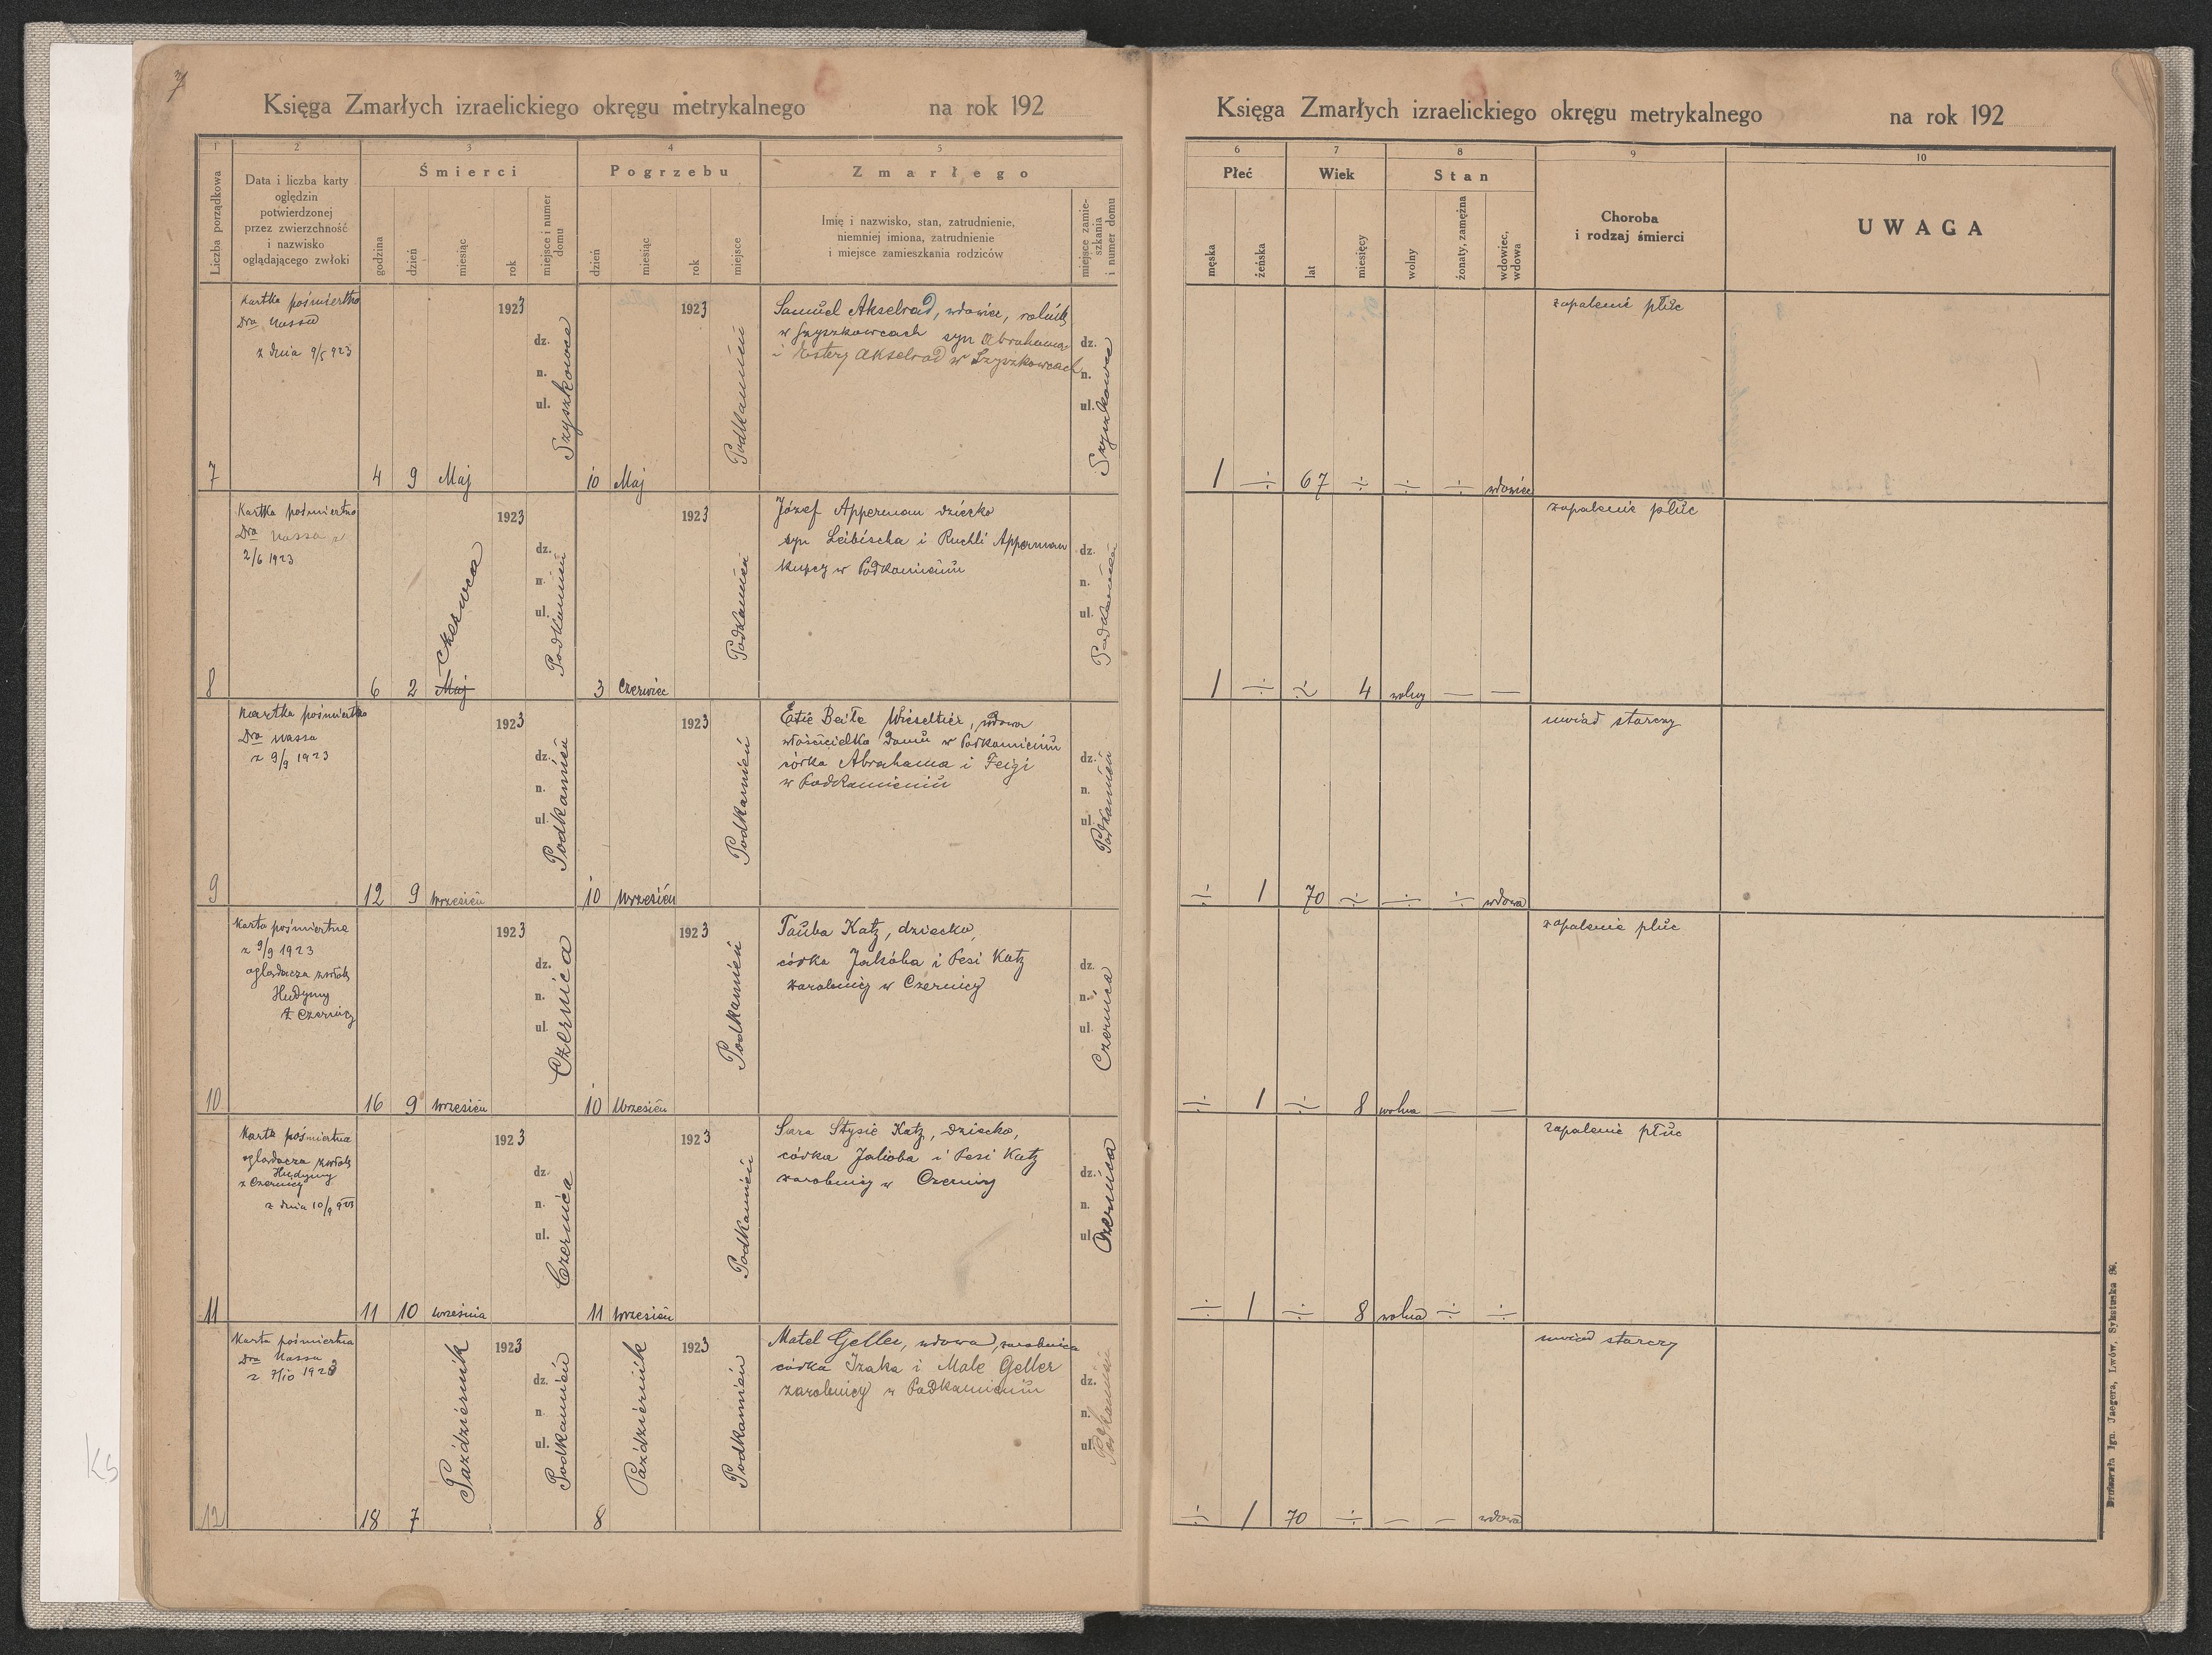 Księga Zmarłych izraelickiego okręgu metrykalnego na rok 192
1 2 3 4 5
Liczba porządkowa
Data i liczba karty
oględzin
potwierdzonej
przez zwierzchność
i nazwisko
oglądającego zwłoki
Śmierci
godzina dzień miesiąc rok miejsce i numer domu
Pogrzebu
dzień miesiąc rok miejsce
Zmarłego
Imię i nazwisko, stan, zatrudnienie,
niemniej imiona, zatrudnienie
i miejsce zamieszkania rodziców
miejsce zamieszkania i numer domu
7
Kartka pośmiertna
Dra Nassa
z dnia 9/5 923
4 9 Maj 1923
dz.
n.
ul.
Szyszkowce
10 Maj 1923 Podkamień
Samuel Akselrad, wdowiec, rolnik
w Szyszkowcach syn Abrahama
i Estery Akselrad w Szyszkowcach
dz.
n.
ul.
Szyszkowce
8
Kartka pośmiertna
Dra Nassa z
2/6 1923
6 2 Maj Czerwca 1923
dz.
n.
ul.
Podkamień
3 Czerwiec 1923 Podkamień
Józef Apperman dziecko
syn Leibischa i Ruchli Apperman
kupcy w Podkamieniu
dz.
n.
ul.
Podkamień
9
Kartka pośmiertna
Dra Nassa
z 9/9 1923
12 9 Wrzesień 1923
dz.
n.
ul.
Podkamień
10 Wrzesień 1923 Podkamień
Etie Beile Wieseltier, wdowa
właścicielka domu w Podkamieniu
córka Abrahama i Feigi
w Podkamieniu
dz.
n.
ul.
Podkamień
10
Karta pośmiertna
z 9/9 1923
oglądacza zwłok
Hudymy
z Czernicy
16 9 Wrzesień 1923
dz.
n.
ul.
Czernica
10 Wrzesień 1923 Podkamień
Tauba Katz, dziecko,
córka Jakóba i Pesi Katz
zarobnicy w Czernicy
dz.
n.
ul.
Czernica
11
Karta pośmiertna
oglądacza zwłok
Hudymy
z Czernicy
z dnia 10/9 923
11 10 września 1923
dz.
n.
ul.
Czernica
11 Wrzesień 1923 Podkamień
Sara Katz, dziecko,
córka Jakóba i Pesi Katz
zarobnicy w Czernicy
dz.
n.
ul.
Czernica
12
Karta pośmiertna
Dra Nassa
z 7/10 1923
18 7 Październik 1923
dz.
n.
ul.
Podkamień
8 Październik 1923 Podkamień
Matel Geller, wdowa, zarobnica
córka Izaka i Male Geller
zarobnicy w Podkamieniu
dz.
n.
ul.
Podkamień
Księga Zmarłych izraelickiego okręgu metrykalnego na rok 192
6 7 8 9 10
Płeć
męska żeńska
Wiek
lat miesięcy
Stan
wolny żonaty, zamężna wdowiec, wdowa
Choroba
i rodzaj śmierci
UWAGA
1 ÷ 67 ÷ ÷ ÷ wdowiec zapalenie płuc
1 ÷ ÷ 4 wolny — — zapalenie płuc
÷ 1 70 ÷ ÷ ÷ wdowa uwiąd starczy
÷ 1 ÷ 8 wolna — — zapalenie płuc
÷ 1 ÷ 8 wolna ÷ ÷ zapalenie płuc
÷ 1 70 ÷ — — wdowa uwiąd starczy
Drukarnia Ign. Jaegera, Lwów, Sykstuska